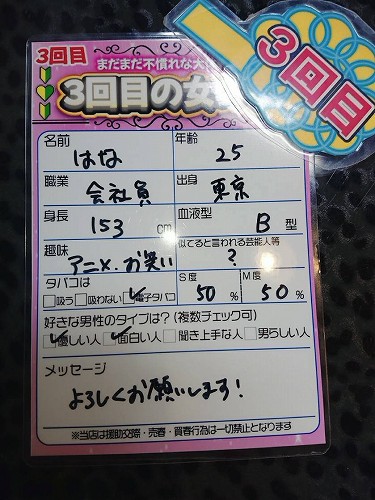 3回目
3回目
まだまだ不慣れな
3回目の女
名前 はな 年齢 25
職業 会社員 出身 東京
身長 153 cm 血液型 B 型
趣味 アニメ、お笑い 似てると言われる芸能人等 ?
タバコは S度 M度
□吸う □吸わない ☑電子タバコ 50 % 50 %
好きな男性のタイプは?(複数チェック可)
☑優しい人 ☑面白い人 □聞き上手な人 □男らしい人
メッセージ
よろしくお願いします!
※当店は援助交際・売春・買春行為は一切禁止となります